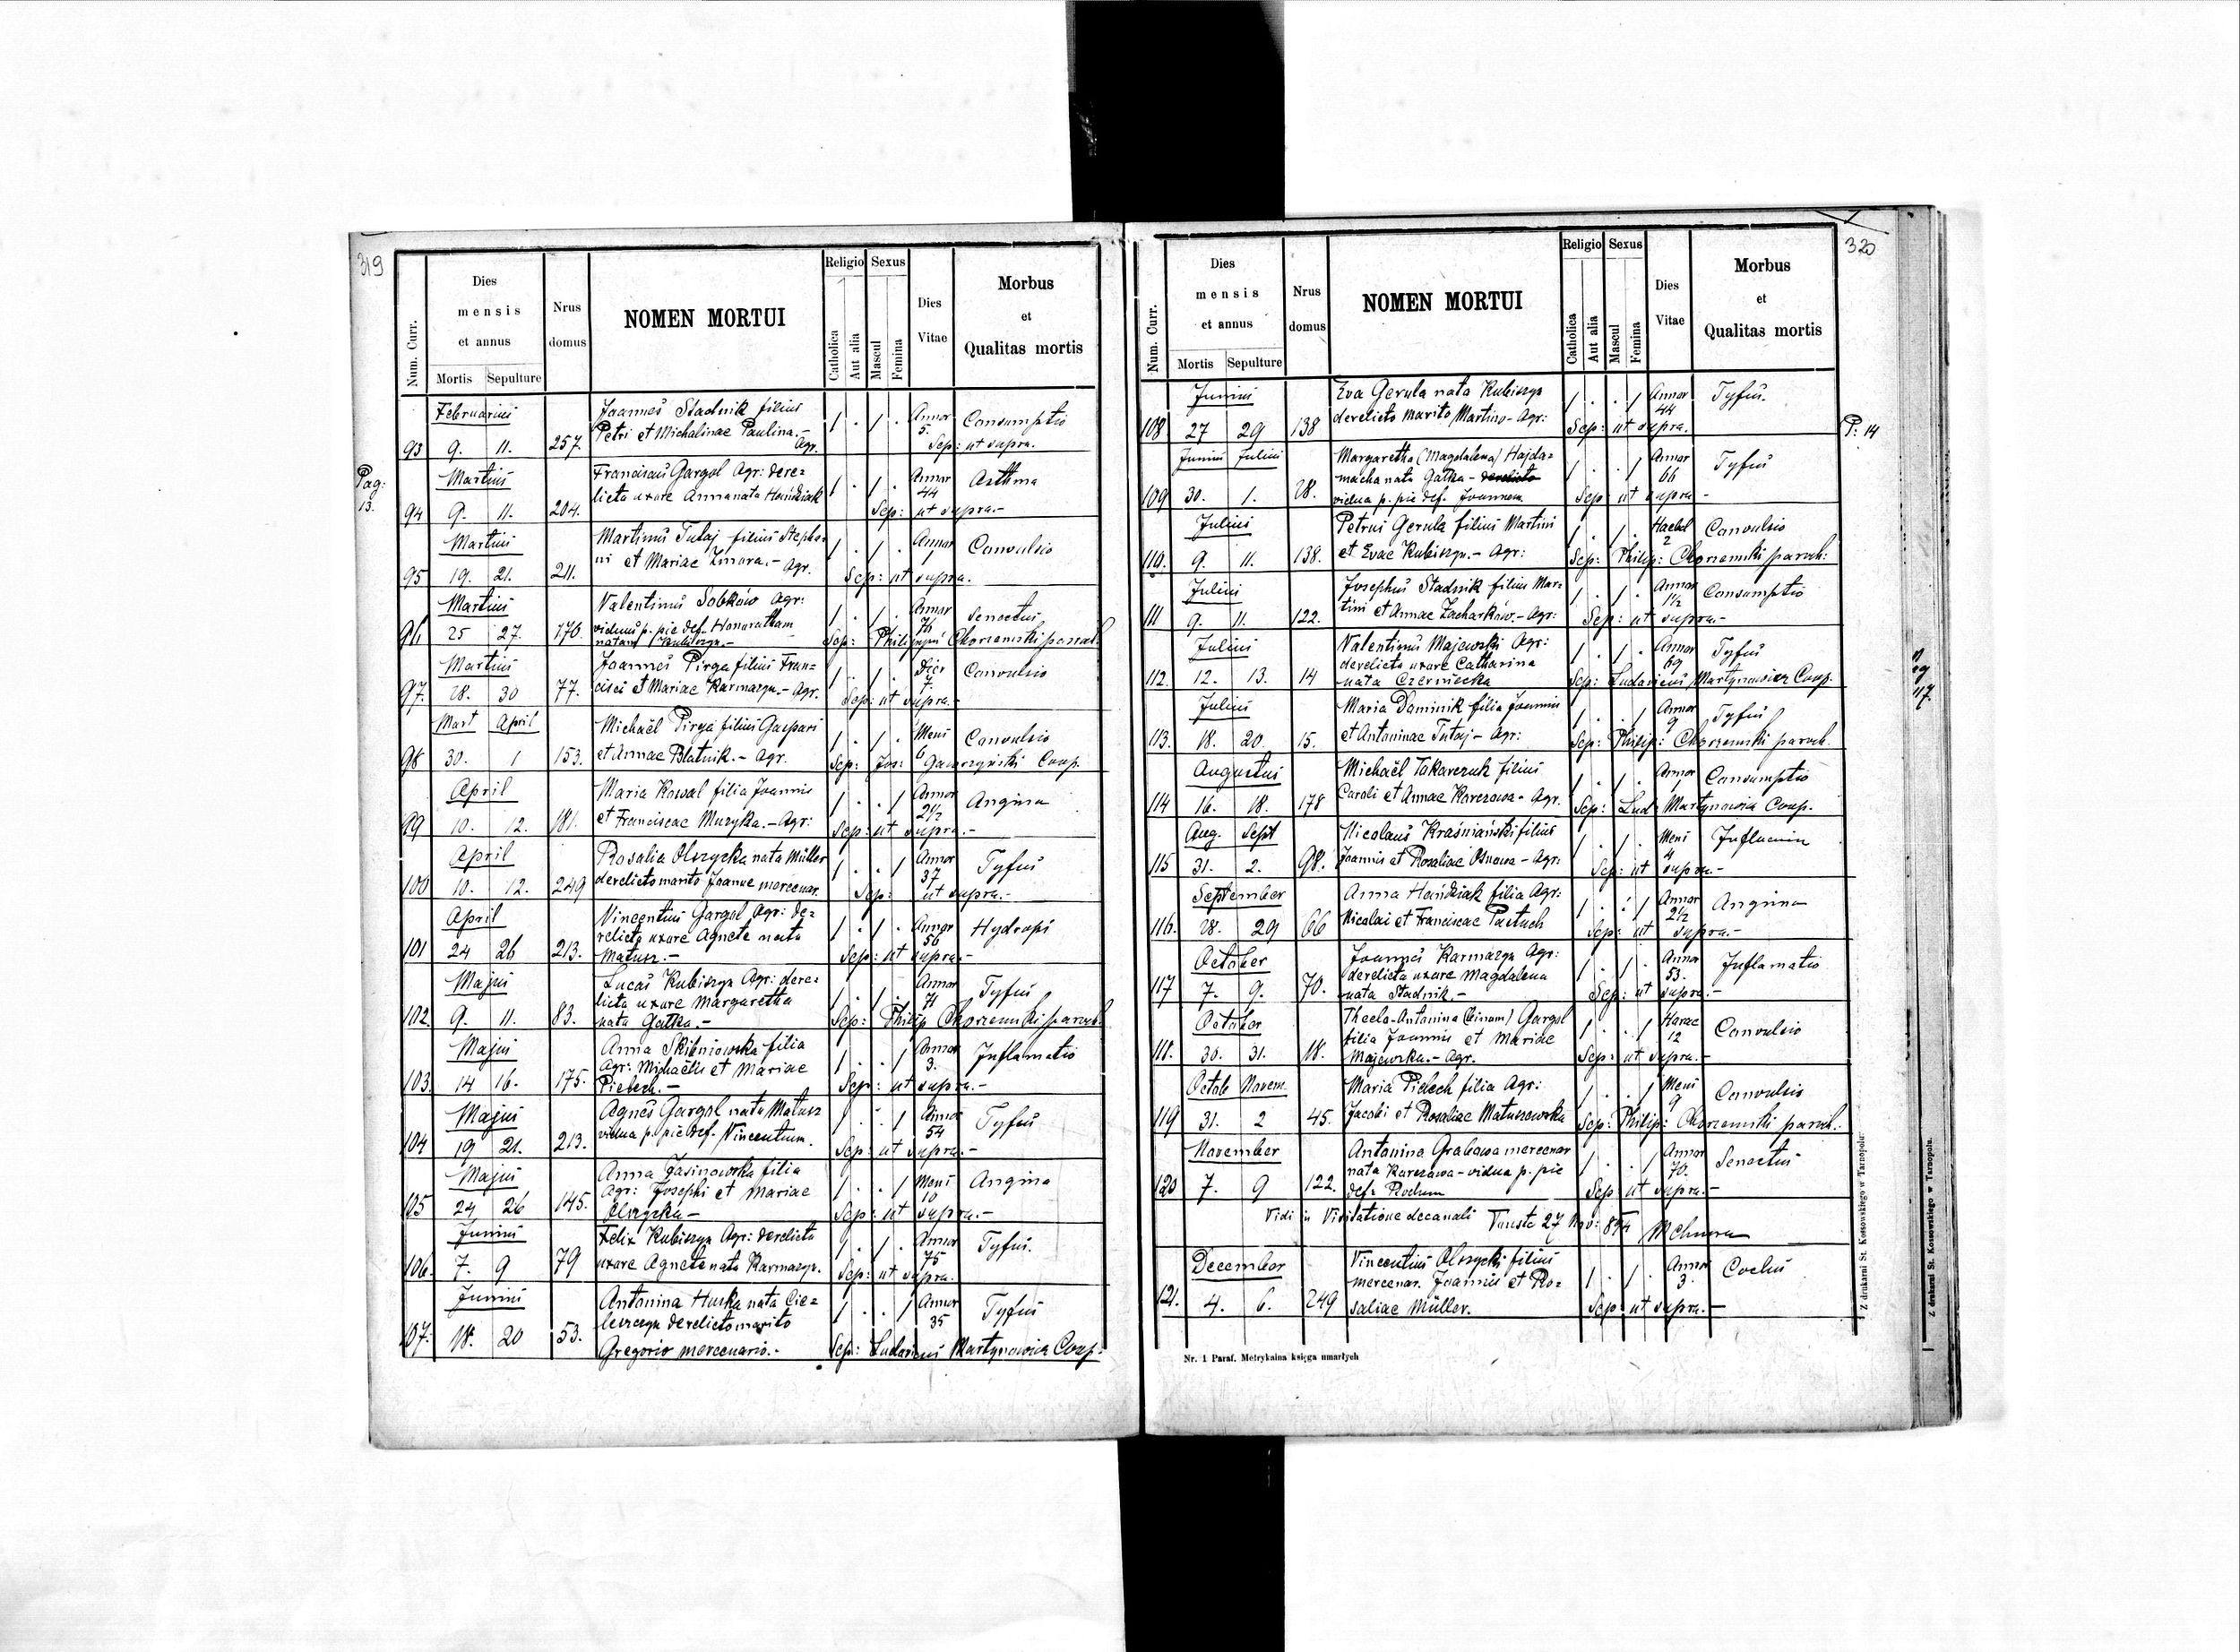 319
Num. Curr.
Dies
mensis
et annus
Mortis
Sepulture
Nrus
domus
NOMEN MORTUI
Religio
Catholica
Aut alia
Sexus
Mascul
Femina
Dies
Vitae
Morbus
et
Qualitas mortis
Februarius
Joannes Stadnik filius
Petri et Michalinae Paulina.-
Agr.
93 9. 11. 257. 1 . 1 . Annor 5. Consumptio
Sep: ut supra.
Pag:
13.
Martius
Franciscus Gargol Agr: dere=
licta uxore Anna nata Hańdziak
94 9. 11. 204. 1 . 1 . Annor 44 Asthma
Sep: ut supra.-
Martius
Martinus Tutaj filius Stepha=
ni et Mariae Zmora.- Agr.
95 19. 21. 211. 1 . 1 . Annor Convulsio
Sep: ut supra.
Martius
Valentinus Sobków Agr:
viduus p. pie def. Honoratham
natam Kubiszyn.-
96 25 27. 170. 1 . 1 . Annor 76 Senectus
Sep: Philippus Chorzemski paroch
Martius
Joannes Pirga filius Fran=
cisci et Mariae Karmazyn.- Agr.
97. 28. 30 77. 1 . 1 . Dier 7 Convulsio
Sep: ut supra.-
Mart April
Michaël Pirga filius Gaspari
et Annae Blatnik.- Agr.
98 30. 1 153. 1 . 1 . Mens 6 Convulsio
Sep: Jos: Gaworzyński Coop.
April
Maria Kowal filia Joannis
et Franciscae Muzyka.- Agr:
99 10. 12. 181. 1 . . 1 Annor 2½ Angina
Sep: ut supra.-
April
Rosalia Olszycka nata Müller
derelicto marito Joanne mercenar.
100 10. 12. 249 1 . . 1 Annor 37 Tyfus
Sep: ut supra.-
April
Vincentius Gargol Agr: de=
relicta uxore Agnete nata
Matusz.-
101 24 26 213. 1 . 1 . Annor 56 Hydropi
Sep: ut supra.-
Majus
Lucas Kubiszyn Agr: dere=
licta uxore Margaretha
nata Gatka.-
102. 9. 11. 83. 1 . 1 . Annor 71 Tyfus
Sep: Philip Chorzemski paroch
Majus
Anna Skibniowska filia
Agr: Michaëlis et Mariae
Pielech.-
103. 14 16. 175. 1 . . 1 Annor 3. Inflamatio
Sep: ut supra.-
Majus
Agnes Gargol nata Matusz
vidua p. pie def. Vincentium.
104 19 21. 213. 1 . . 1 Annor 54 Tyfus
Sep: ut supra.-
Majus
Anna Jasinowska filia
Agr: Josephi et Mariae
Olszycka-
105 24 26 145. 1 . . 1 Mens 10 Angina
Sep: ut supra.-
Junius
Felix Kubiszyn Agr: derelicta
uxore Agnete nata Karmazyn.
106. 7. 9 79 1 . 1 . Annor 75 Tyfus.
Sep: ut supra.
Junius
Antonina Huska nata Cie=
leszczyn derelicto marito
Gregorio mercenario.-
107. 18. 20 53. 1 . . 1 Annor 35 Tyfus
Sep: Ludovicus Martynowicz Coop:
320
Num. Curr.
Dies
mensis
et annus
Mortis
Sepulture
Nrus
domus
NOMEN MORTUI
Religio
Catholica
Aut alia
Sexus
Mascul
Femina
Dies
Vitae
Morbus
et
Qualitas mortis
Junius
Eva Gerula nata Kubiszyn
derelicto marito Martino- Agr:
108 27 29 138 1 . . 1 Annor 44 Tyfus.
Sep: ut supra.
P: 14
Junius Julius
Margaretha (Magdalena) Hajda=
macha nata Gatka- derelicto
vidua p. pie def. Joannem.
109 30. 1. 28. 1 . . 1 Annor 66 Tyfus
Sep: ut supra-
Julius
Petrus Gerula filius Martini
et Evae Kubiszyn.- Agr:
110. 9. 11. 138. 1 . 1 . Haebd 2 Convulsio
Sep: Philip: Chorzemski paroch:
Julius
Josephus Stadnik filius Mar=
tini et Annae Zacharków.- Agr:
111 9. 11. 122. 1 . 1 . Annor 1½ Consumptio
Sep: ut supra.-
Julius
Valentinus Majewski Agr:
derelicta uxore Catharina
nata Czerniecka
112. 12. 13. 14 1 . 1 . Annor 69 Tyfus
Sep: Ludovicus Martynowicz Coop.
Julius
Maria Dominik filia Joannis
et Antoninae Tutaj- Agr:
113. 18. 20. 15. 1 . . 1 Annor 9 Tyfus
Sep: Philip: Chorzemski paroch.
Augustus
Michaël Tokarczuk filius
Caroli et Annae Karczowa- Agr.
114 16. 18. 178 1 . 1 . Annor Consumptio
Sep: Lud Martynowicz Coop.
Aug. Sept
Nicolaus Kraśniański filius
Joannis et Rosaliae Osnowa- Agr:
115 31. 2. 98. 1 . 1 . Mens 4
Sep: ut supra.-
September
Anna Hańdziak filia Agr:
Nicolai et Franciscae Pastuch
116. 28. 29 66 1 . : 1 Annor 2½ Angina
Sep: ut supra.-
October
Joannes Karmazyn Agr:
derelicta uxore Magdalena
nata Stadnik.-
117 7. 9. 70. 1 . 1 . Annor 53. Inflamatio
Sep: ut supra.-
October
Thecla-Antonina (binom) Gargol
filia Joannis et Mariae
Majewska.- Agr.
118. 30. 31. 18. 1 . . 1 Horae 12 Convulsio
Sep: ut supra.-
Octob Novem.
Maria Pielech filia Agr:
Jacobi et Rosaliae Matuszewska
119 31. 2 45. 1 . . 1 Mens 9 Convulsio
Sep: Philip: Chorzemski paroch.
November
Antonina Grabowa mercenar
nata Karczowa- vidua p. pie
def: Rochum
120 7. 9 122. 1 . . 1 Annor 70. Senectus
Sep: ut supra.-
Vidi in Visitatione decanali Touste 27 Nov: 894
December
Vincentius Olszycki filius
mercenar. Joannis et Ro=
saliae Müller.
121. 4. 6. 249 1 . 1 . Annor 3.
Sep: ut supra.-
Nr. 1 Paraf. Metrykalna księga umarłych
Z drukarni St. Kossowskiego w Tarnopolu.
Z drukarni St. Kossowskiego w Tarnopolu.